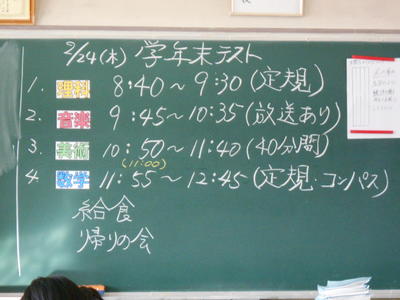 2/24(木) 学年末テスト
1. 理科 8:40～9:30(定規)
2. 音楽 9:45～10:35(放送あり)
3. 美術 10:50～11:40(40分間)
(11:00)
4. 数学 11:55～12:45(定規・コンパス)
給食
帰りの会